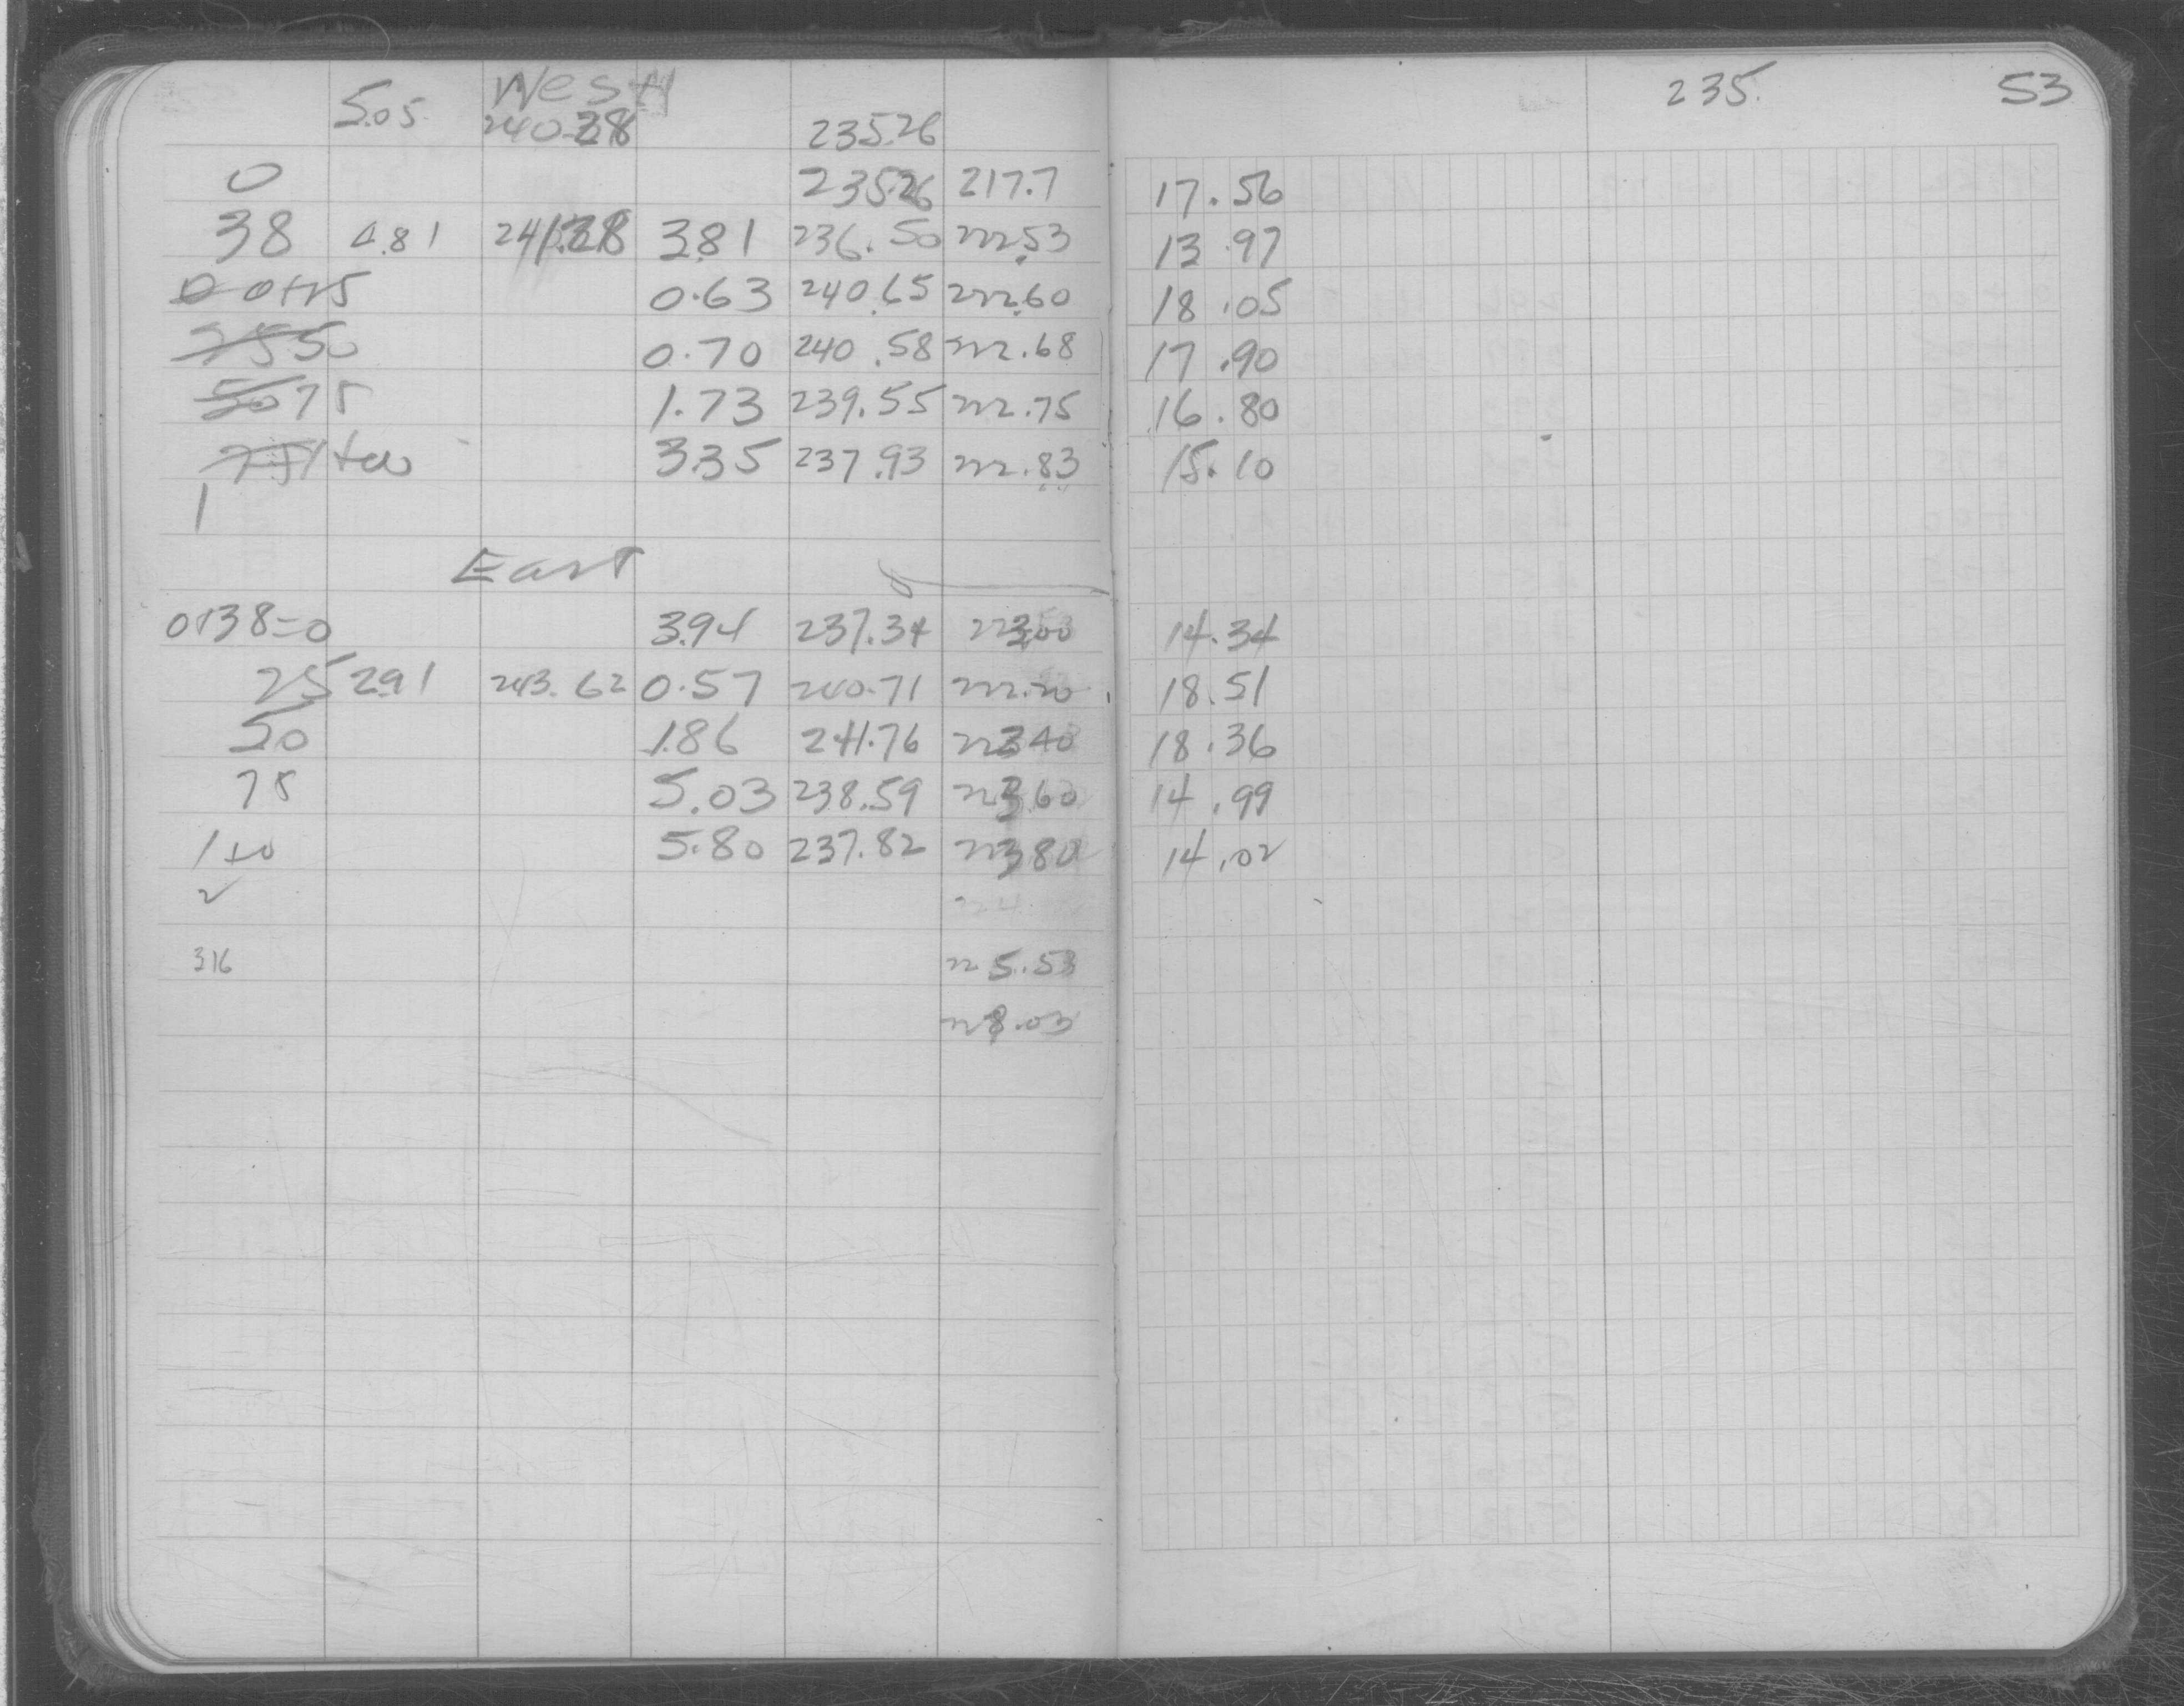 West 235. 53
5.05 240.28 235.26
0 235.26 217.7 17.56
38 4.81 241.28 3.81 236.50 222.53 13.97
0+25 0.63 240.65 222.60 18.05
50 0.70 240.58 222.68 17.90
75 1.73 239.55 222.75 16.80
1+00 3.35 237.93 222.83 15.10
1
East
0+38=0 3.94 237.34 223.00 14.34
25 2.91 243.62 0.57 240.71 222.20 18.51
50 1.86 241.76 223.40 18.36
75 5.03 238.59 223.60 14.99
1+0 5.80 237.82 223.80 14.02
2
316 225.53
228.03